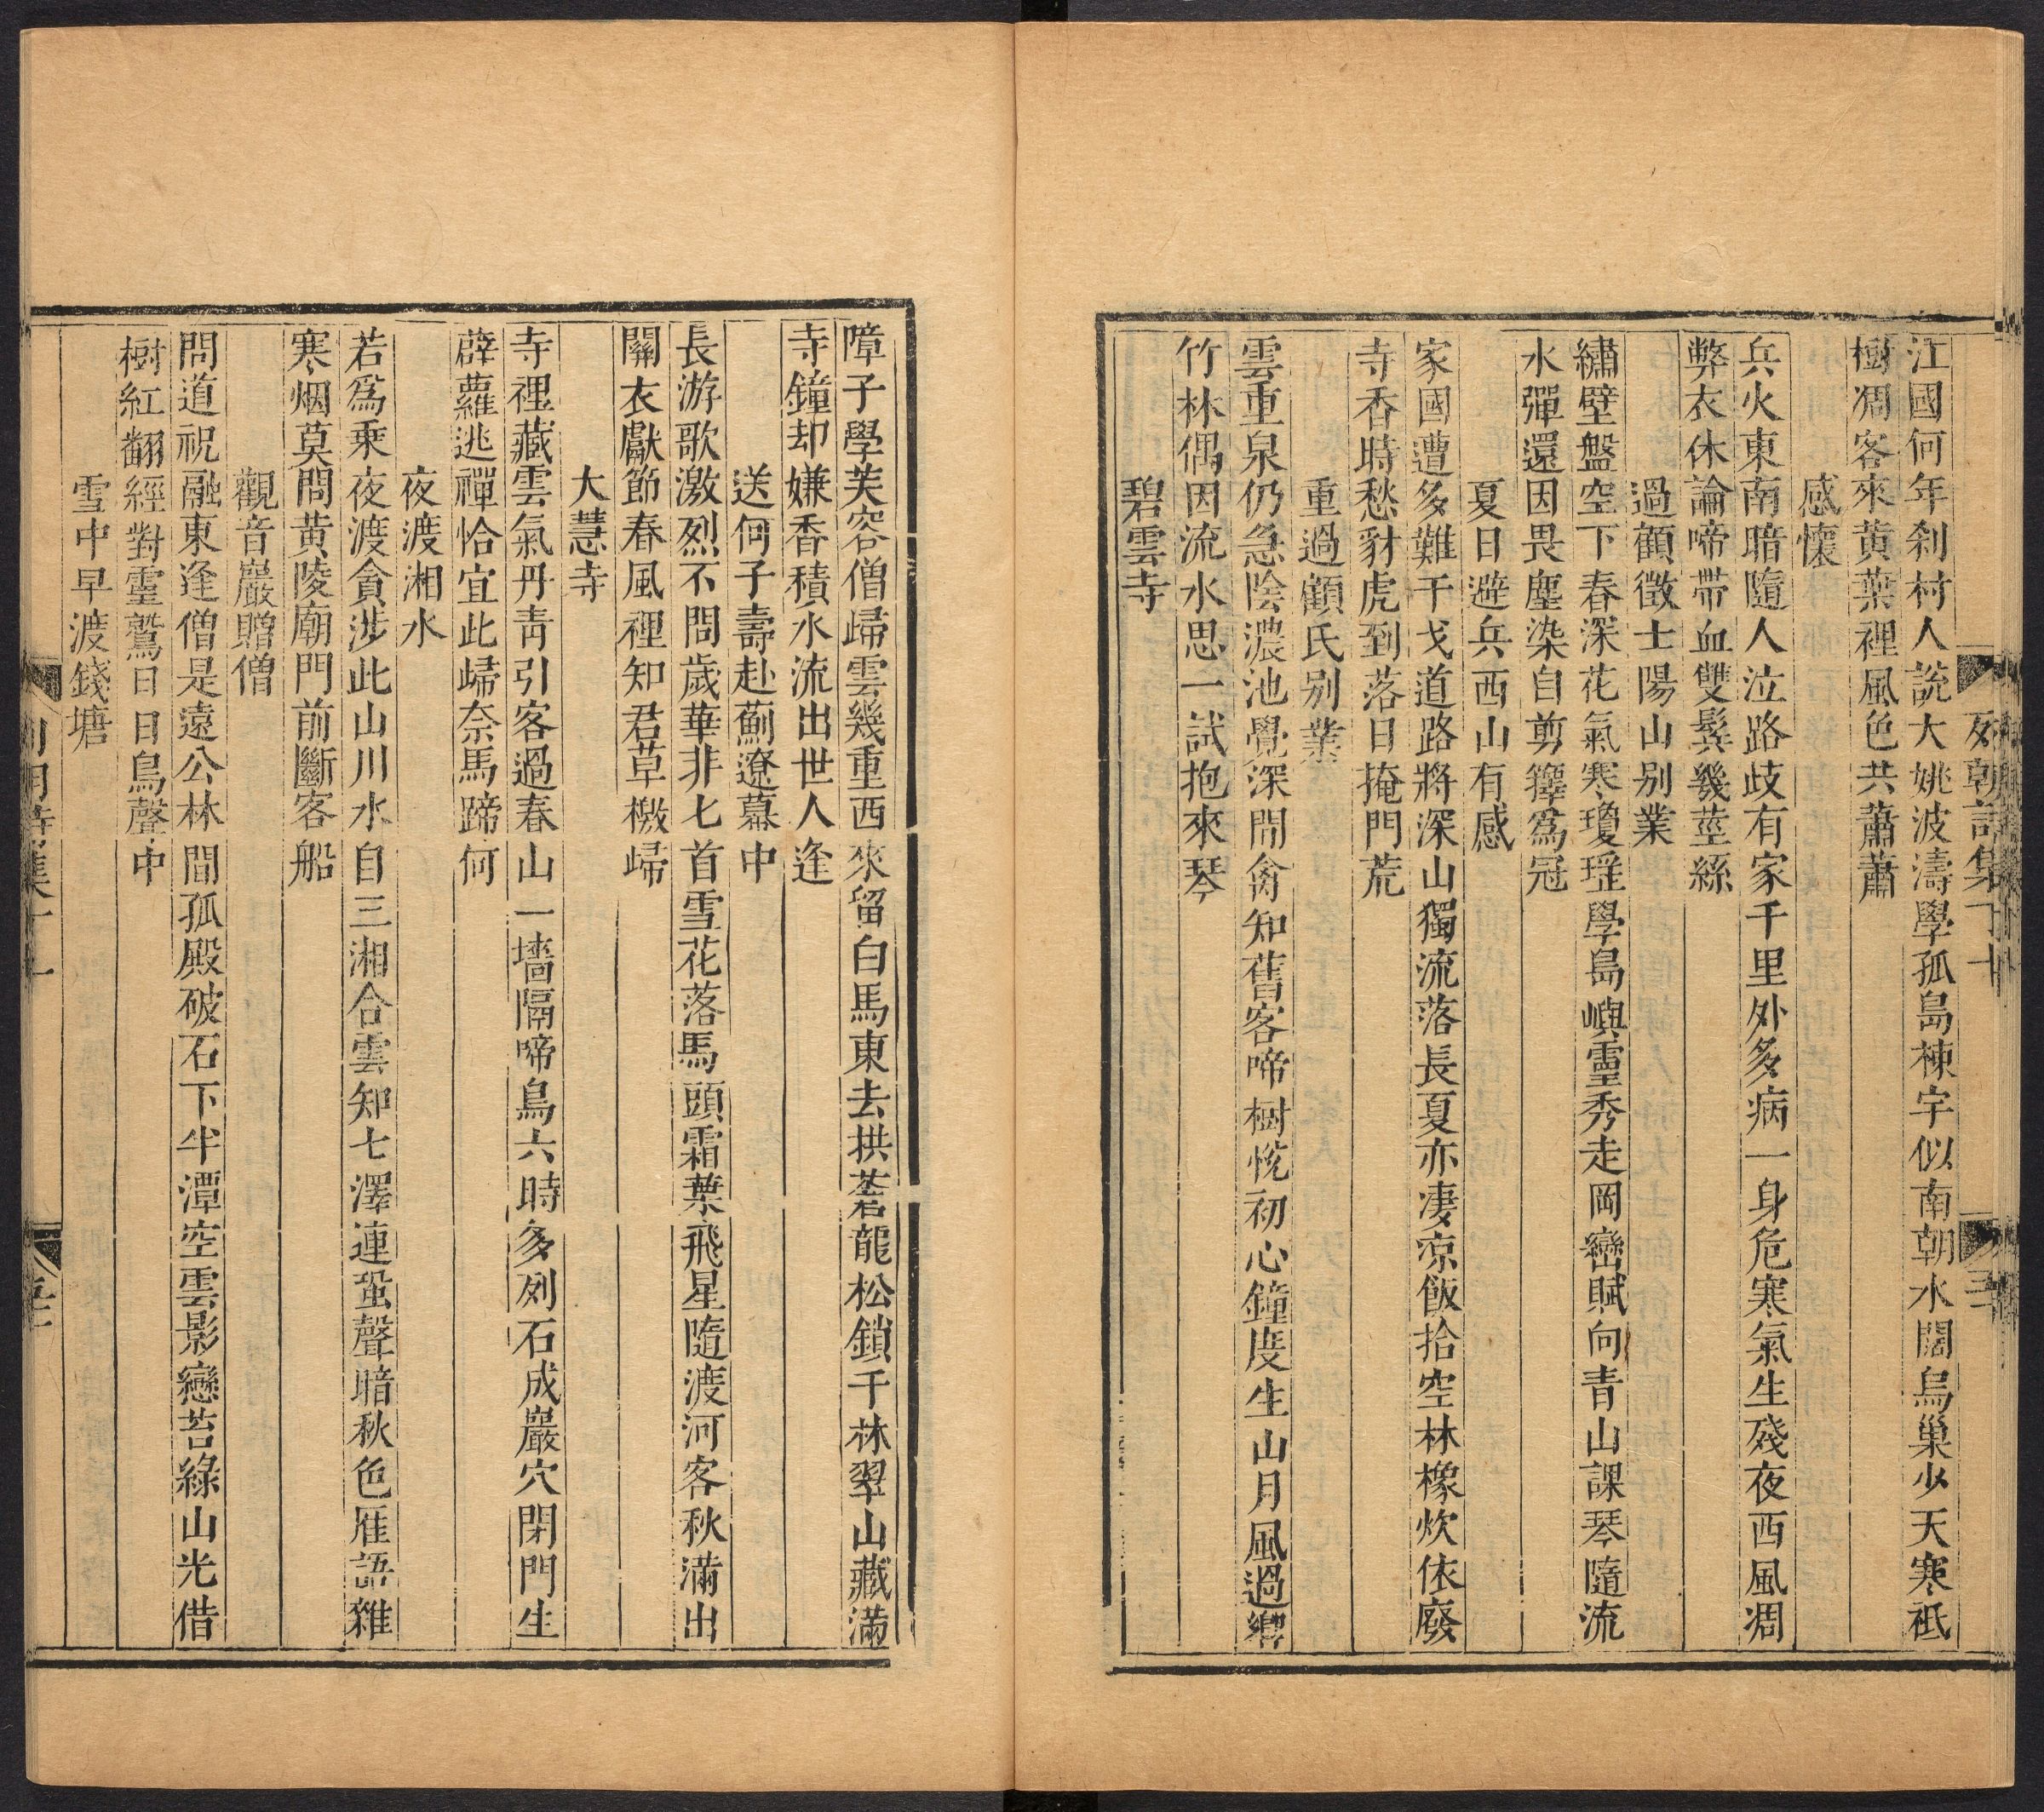 江國何年刹村人說大姚波濤學孤島棟宇似南朝水闊烏巢少天寒祗
樹凋客來黄葉裡風色共蕭蕭
感懷
兵火東南暗隨人泣路歧有家千里外多病一身危寒氣生殘夜西風凋
弊衣休論啼帶血雙鬂幾莖絲
過顧徵士陽山别業
繡壁盤空下春深花氣寒瓊瑶學島嶼靈秀走岡巒賦向青山課琴隨流
水彈還因畏塵染自剪籜爲冠
夏日避兵西山有感
家國遭多難干戈道路將深山獨流落長夏亦凄凉飯拾空林橡炊依廢
寺香時愁豺虎到落日掩門荒
重過顧氏别業
雲重泉仍急陰濃池覺深閒禽知舊客啼樹恱初心鐘度生山月風過響
竹林偶因流水思一試抱來琴
碧雲寺
障子學芙容僧歸雲幾重西來留白馬東去拱蒼龍松鎖千林翠山藏滿
寺鐘却嫌香積水流出世人逢
送何子壽赴薊遼幕中
長游歌激烈不問歲華非七首雪花落馬頭霜葉飛星隨渡河客秋滿出
關衣獻節春風裡知君草檄歸
大慧寺
寺裡藏雲氣丹青引客過春山一墻隔啼鳥六時多列石成巖穴閉門生
薜蘿逃禪恰宜此歸奈馬蹄何
夜渡湘水
若爲乘夜渡貪涉此山川水自三湘合雲知七澤連蛩聲暗秋色雁語雜
寒烟莫問黄陵廟門前斷客船
觀音巖贈僧
問道祝融東逢僧是遠公林間孤殿破石下半潭空雲影戀苔綠山光借
樹紅翻經對靈鷲日日鳥聲中
雪中早渡錢塘